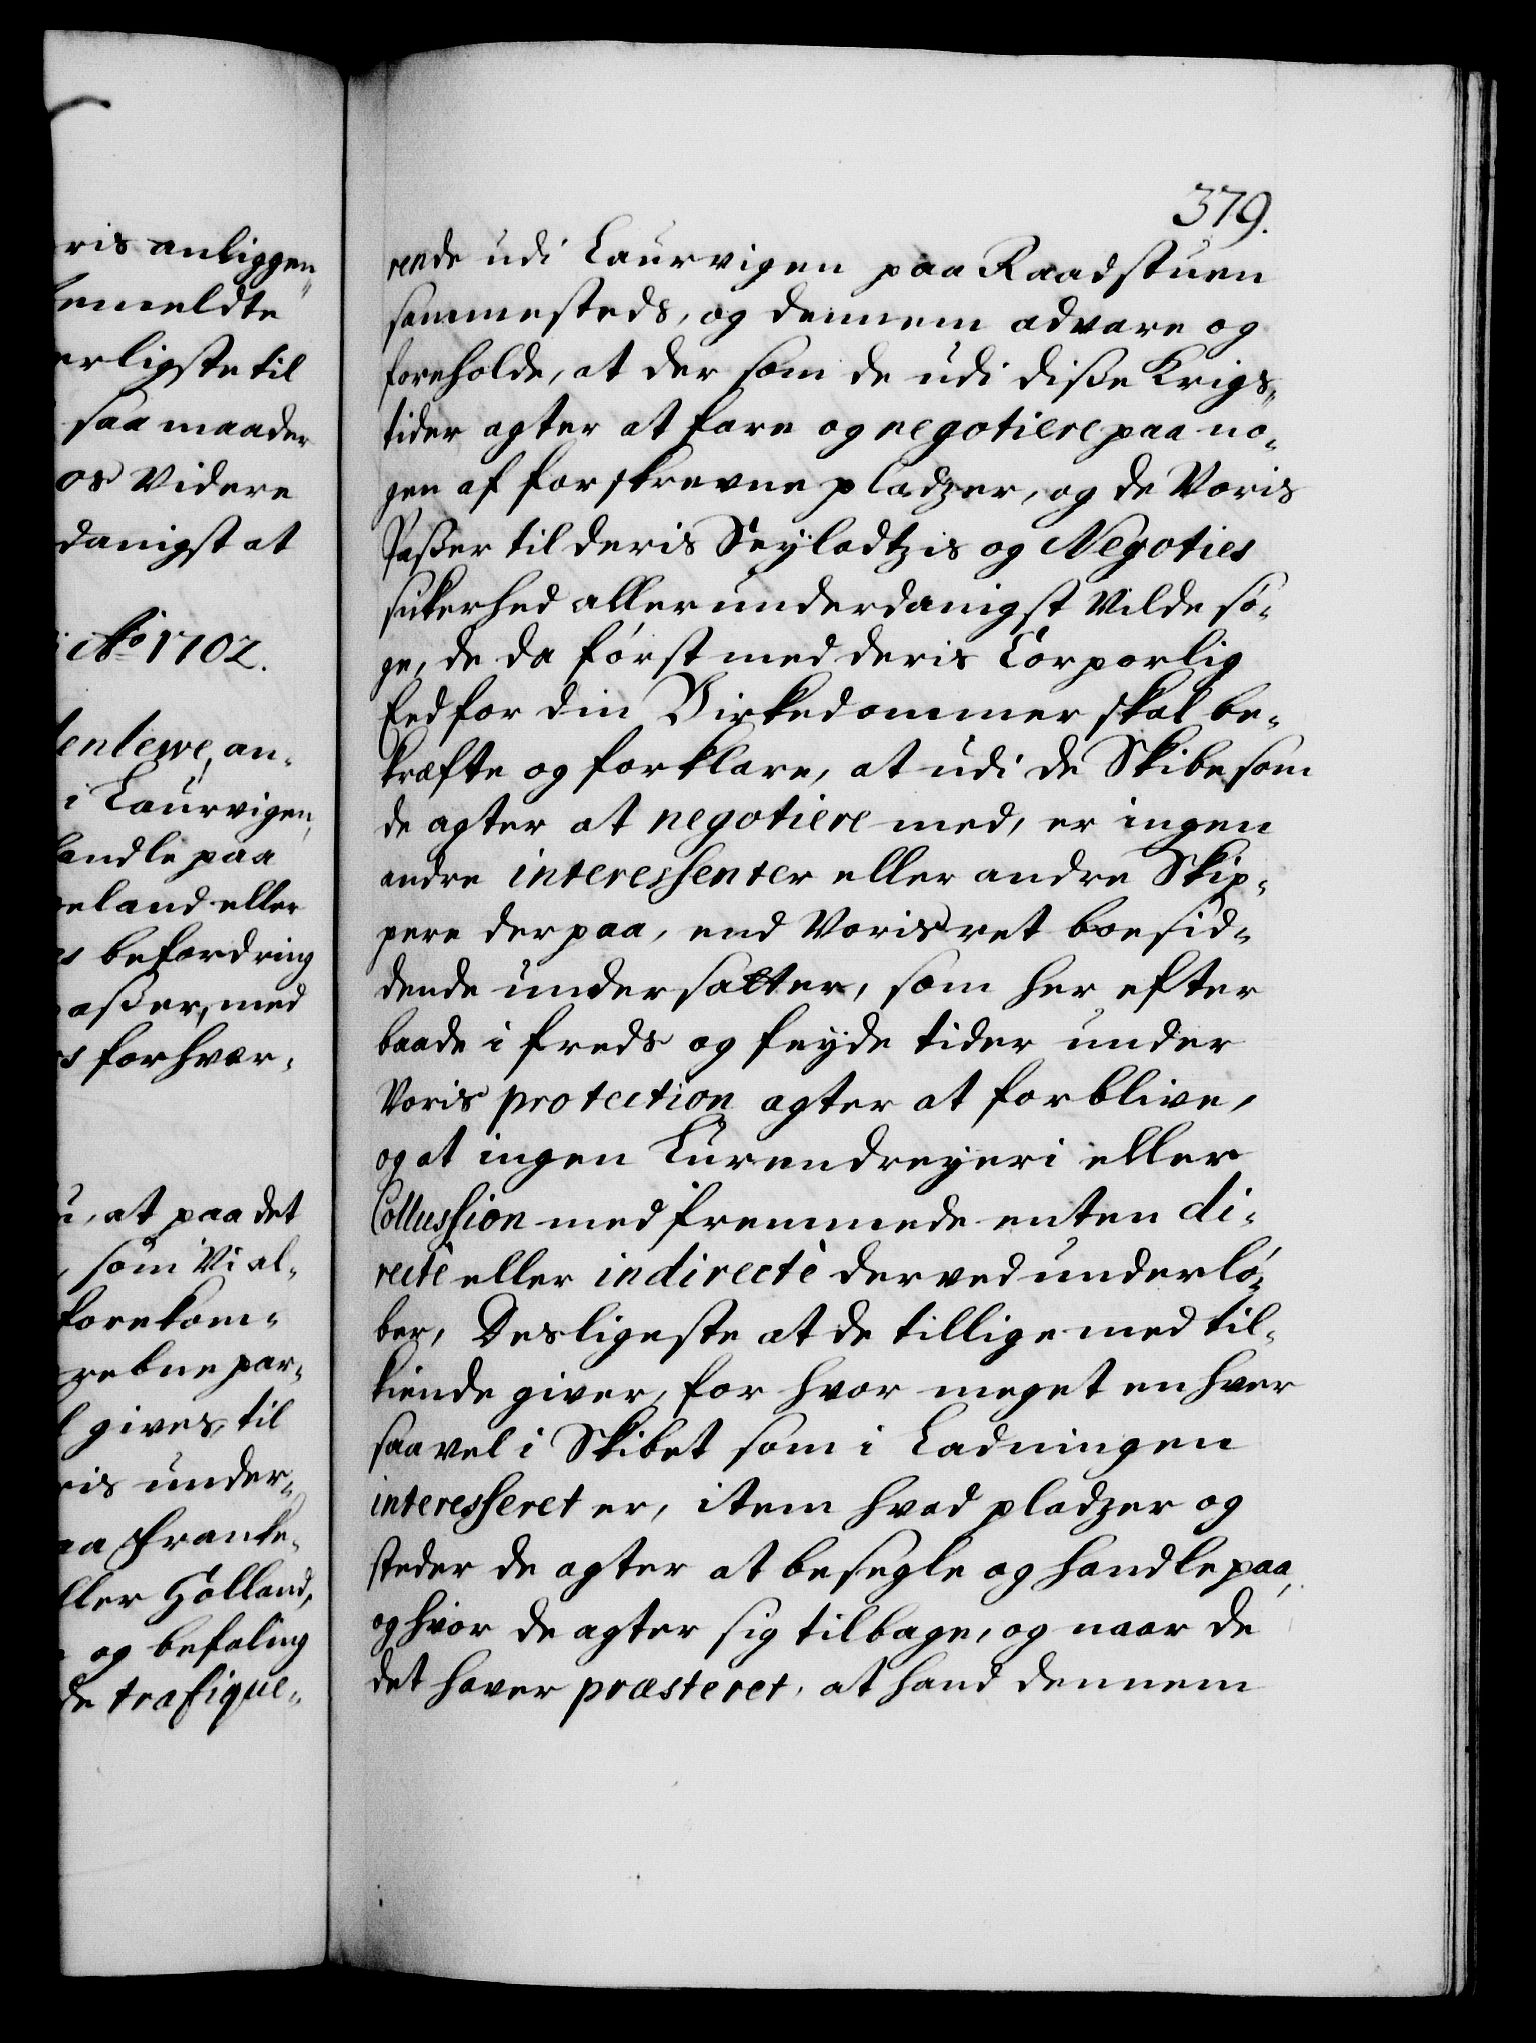 ris anliggen„
emeldte
erligste til
saa maader
os Videre
danigst at
Ao 1702.
lenlewe, an„
i Laurvigen,
andle paa
eland eller
s befordring
asser, med
s forhver„
at paa det
, som Vi al„
forekom„
grebne par„
l gives, til
ris under„
aa Franke„
ller Holland,
og befaling
de trafique„
379.
rende udi Laurvigen paa Raadstuen
sammesteds, og dennem advare og
foreholde, at der som de udi diße Krigs„
tider agter at fare og negotiere paa no„
gen af forskrevne pladzer, og de Voris
Paßer til deris Seyladtzis og Negoties
sikerhed allerunderdanigst Vilde sø„
ge, de da først med deris Corporlig
Eed for din Birkedommer skal be„
kræfte og forklare, at udi de Skibe som
de agter at negotiere med, er ingen
andre interessenter eller andre Skip„
pere derpaa, end Voris ret boesid„
dende undersatter, som her efter
baade i freds og feyde tider under
Voris protection agter at forblive,
og at ingen Lurendreyeri eller
Collussion med fremmede enten di„
rectè eller indirectè derved underlø„
ber, Desligeste at de tillige med til„
kiende giver, for hvor meget en hver
saavel i Skibet som i Ladningen
interesseret er, item hvad pladzer og
steder de agter at besegle og handle paa,
og hvor de agter sig tilbage, og naar de
det haver præsteret, at hand dennem